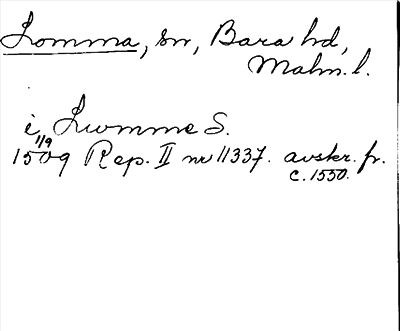 Lomma, sn, Bara hd,
Malm. l.
i Lwmme S.
1/9
1509 Rep. II nr 11337. avskr. fr.
c. 1550.